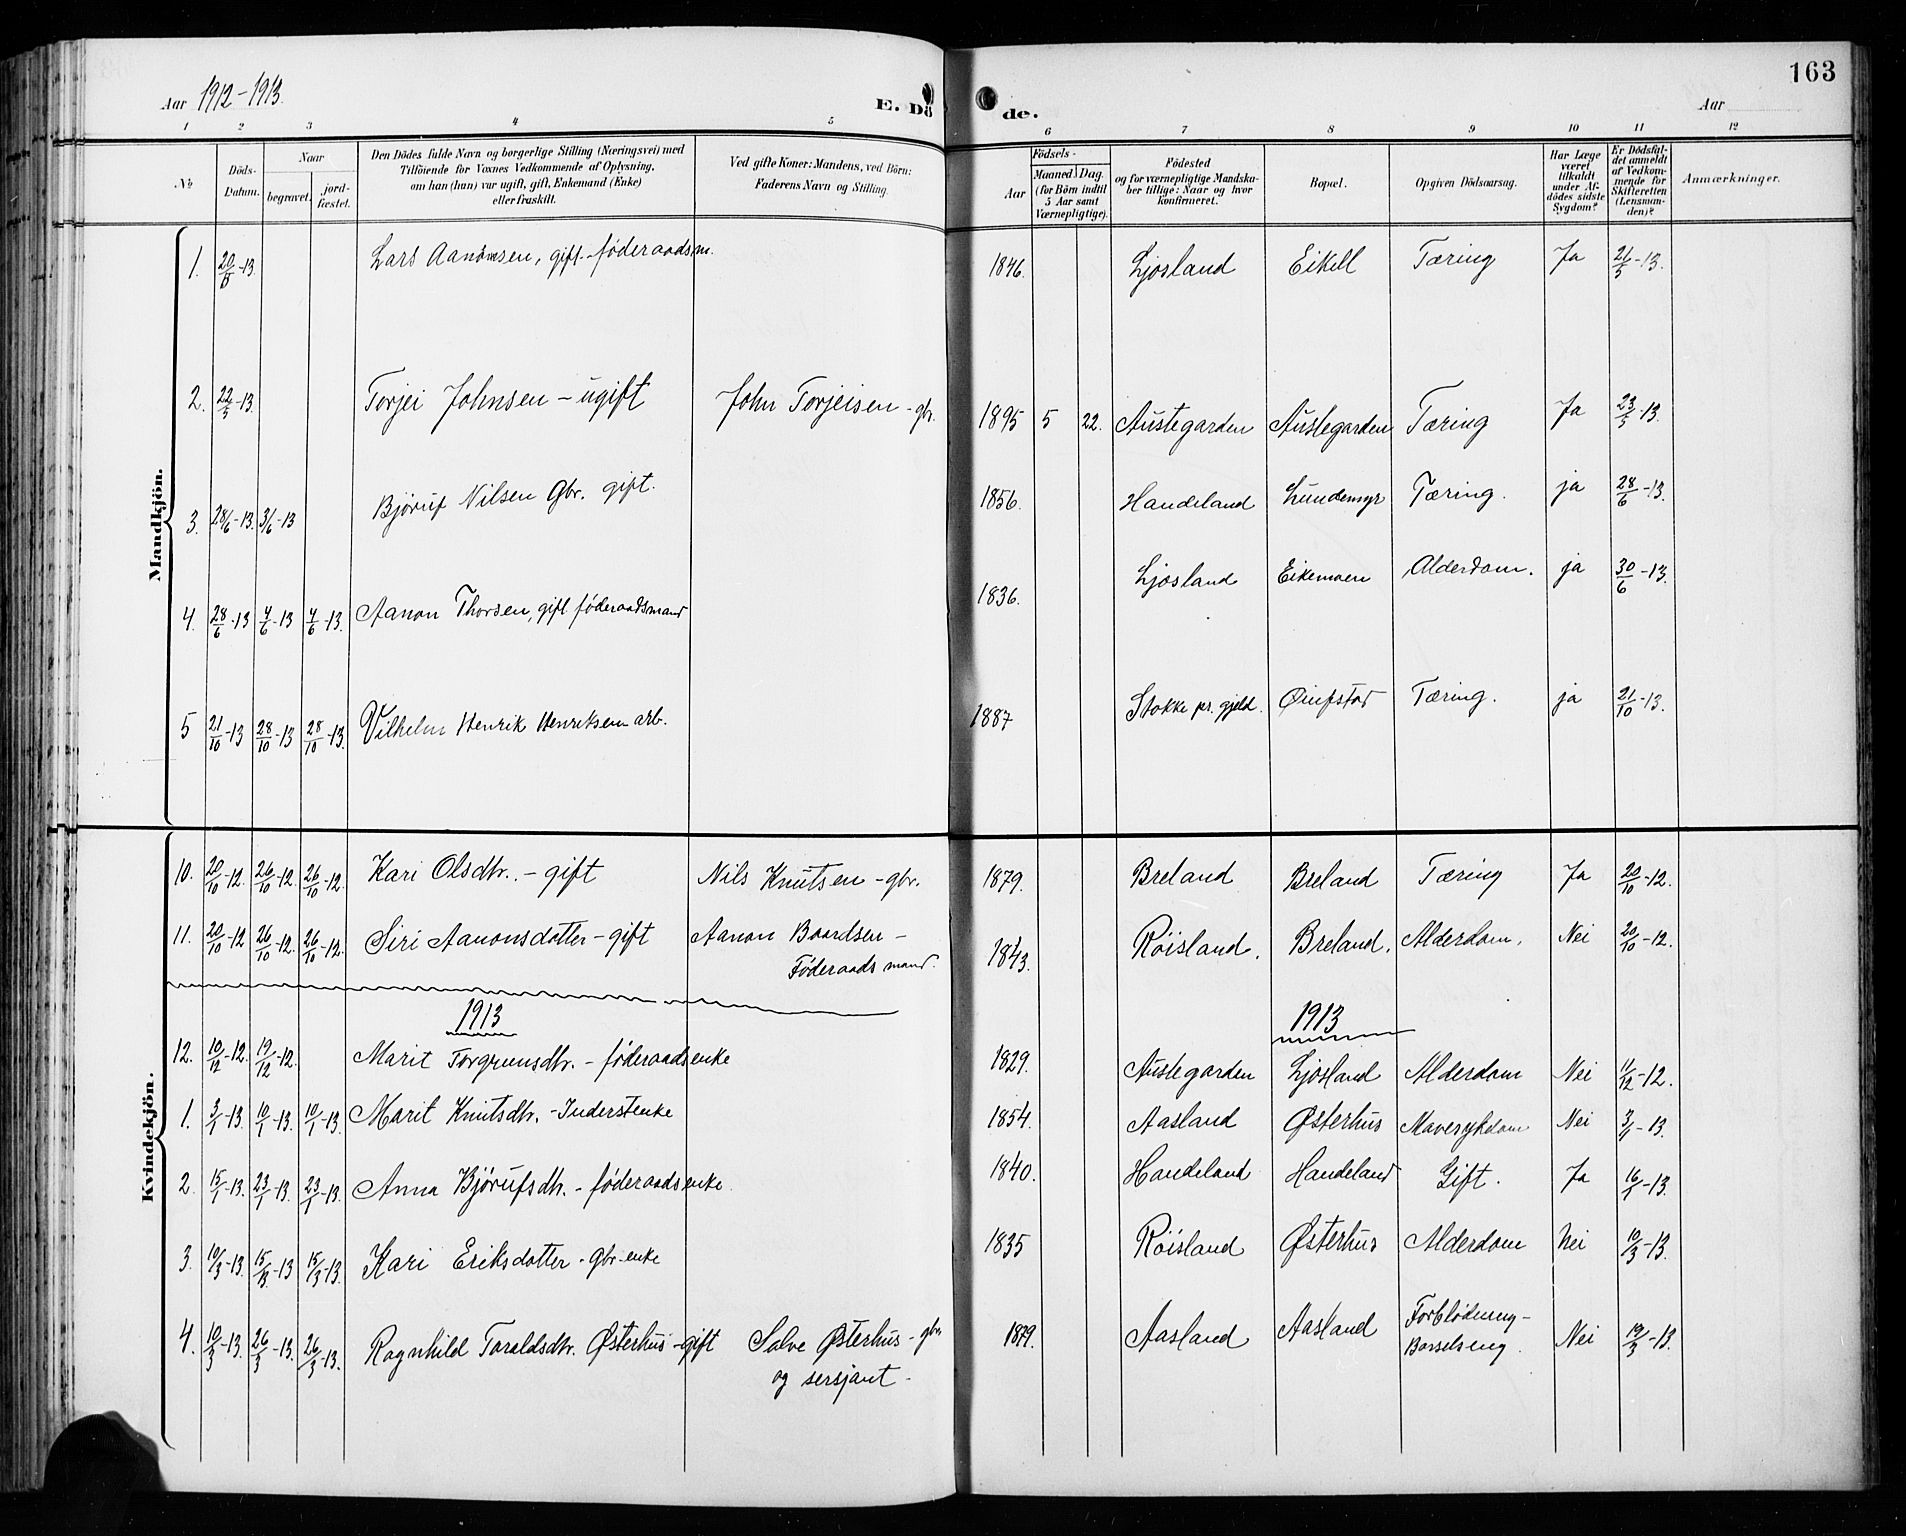 163
Aar 1912-1913.
E. Dö de.
Aar
1 2 3 4 5 6 7 8 9 10 11 12
№
Döds-Datum.
Naar
begravet.
jord-fæstet.
Den Dödes fulde Navn og borgerlige Stilling (Næringsvei) med
Tilföiende for Voxnes Vedkommende af Oplysning,
om han (hun) var ugift, gift, Enkemand (Enke)
eller fraskilt.
Ved gifte Koner: Mandens, ved Börn:
Faderens Navn og Stilling.
Födsels-
Aar
Maaned. Dag.
(for Börn indtil
5 Aar samt
Værnepligtige).
Födested
og for værnepligtige Mandska-
ber tillige: Naar og hvor
konfirmeret.
Bopæl.
Opgiven Dödsaarsag.
Har Læge
været
tilkaldt
under Af-
dödes sidste
Sygdom?
Er Dödsfal-
det anmeldt
af Vedkom-
mende for
Skifteretten
(Lensman-
den)?
Anmærkninger.
Mandkjön.
1. 20/5-13. Lars Aanonsen, gift. føderaadsm. 1846. Ljosland Eikell Tæring Ja 21/5-13.
2. 22/5-13. Torjei Johnsen – ugift John Torjeisen – gbr. 1895 5 22. Austegarden Austegarden Tæring Ja 23/5-13.
3. 28/6-13. 3/6-13 Bjøruf Nilsen Gbr. gift. 1856. Handeland Lundemyr Tæring. ja 28/6-13.
4. 28/6-13 4/6-13 4/6-13. Aanon Thorsen, gift føderaadsmand 1836. Ljosland Eikemoen Alderdom. ja 30/6-13.
5 21/10-13 28/10-13 28/10-13. Vilhelm Henrik Henriksen arb. 1887 Stokke pr. gjeld. Tæring. ja 21/10-13.
Kvindekjön.
10. 20/10-12. 26/10-12. 26/10-12. Kari Olsdtr. – gift Nils Knutsen – gbr. 1879. Breland Breland Tæring Ja 20/10-12.
11. 20/10-12 26/10-12. 26/10-12. Siri Aanonsdatter – gift Aanon Baardsen –
Føderaads mand. 1843. Röisland. Breland. Alderdom. Nei 20/10-12.
1913 1913
12. 10/12-12. 19/12-12. Marit Torgrimsdtr. – føderaadsenke 1829. Austegarden Ljosland Alderdom Nei 11/12-12.
1. 3/1-13. 10/1-13. 10/1-13. Marit Knutsdtr. – Inderstenke 1854. Aasland Østerhus Mavesykdom Nei 3/1-13.
2. 15/1-13. 23/1-13. 23/1-13. Anna Bjørufsdtr. – føderaadsenke. 1840. Handeland Handeland Gift. Ja 16/1-13.
3. 10/3-13. 15/3-13 15/3-13. Kari Eriksdatter – Gbr. enke 1835 Röisland Østerhus Alderdom Nei 10/3-13.
4. 10/3-13. 26/3-13. 26/3-13. Ragnhild Taraldsdtr. Østerhus – gift Salve Østerhus – gbr.
og sersjant – 1879. Aasland Aasland Forblødning –
Barselseng. Nei 19/3-13.